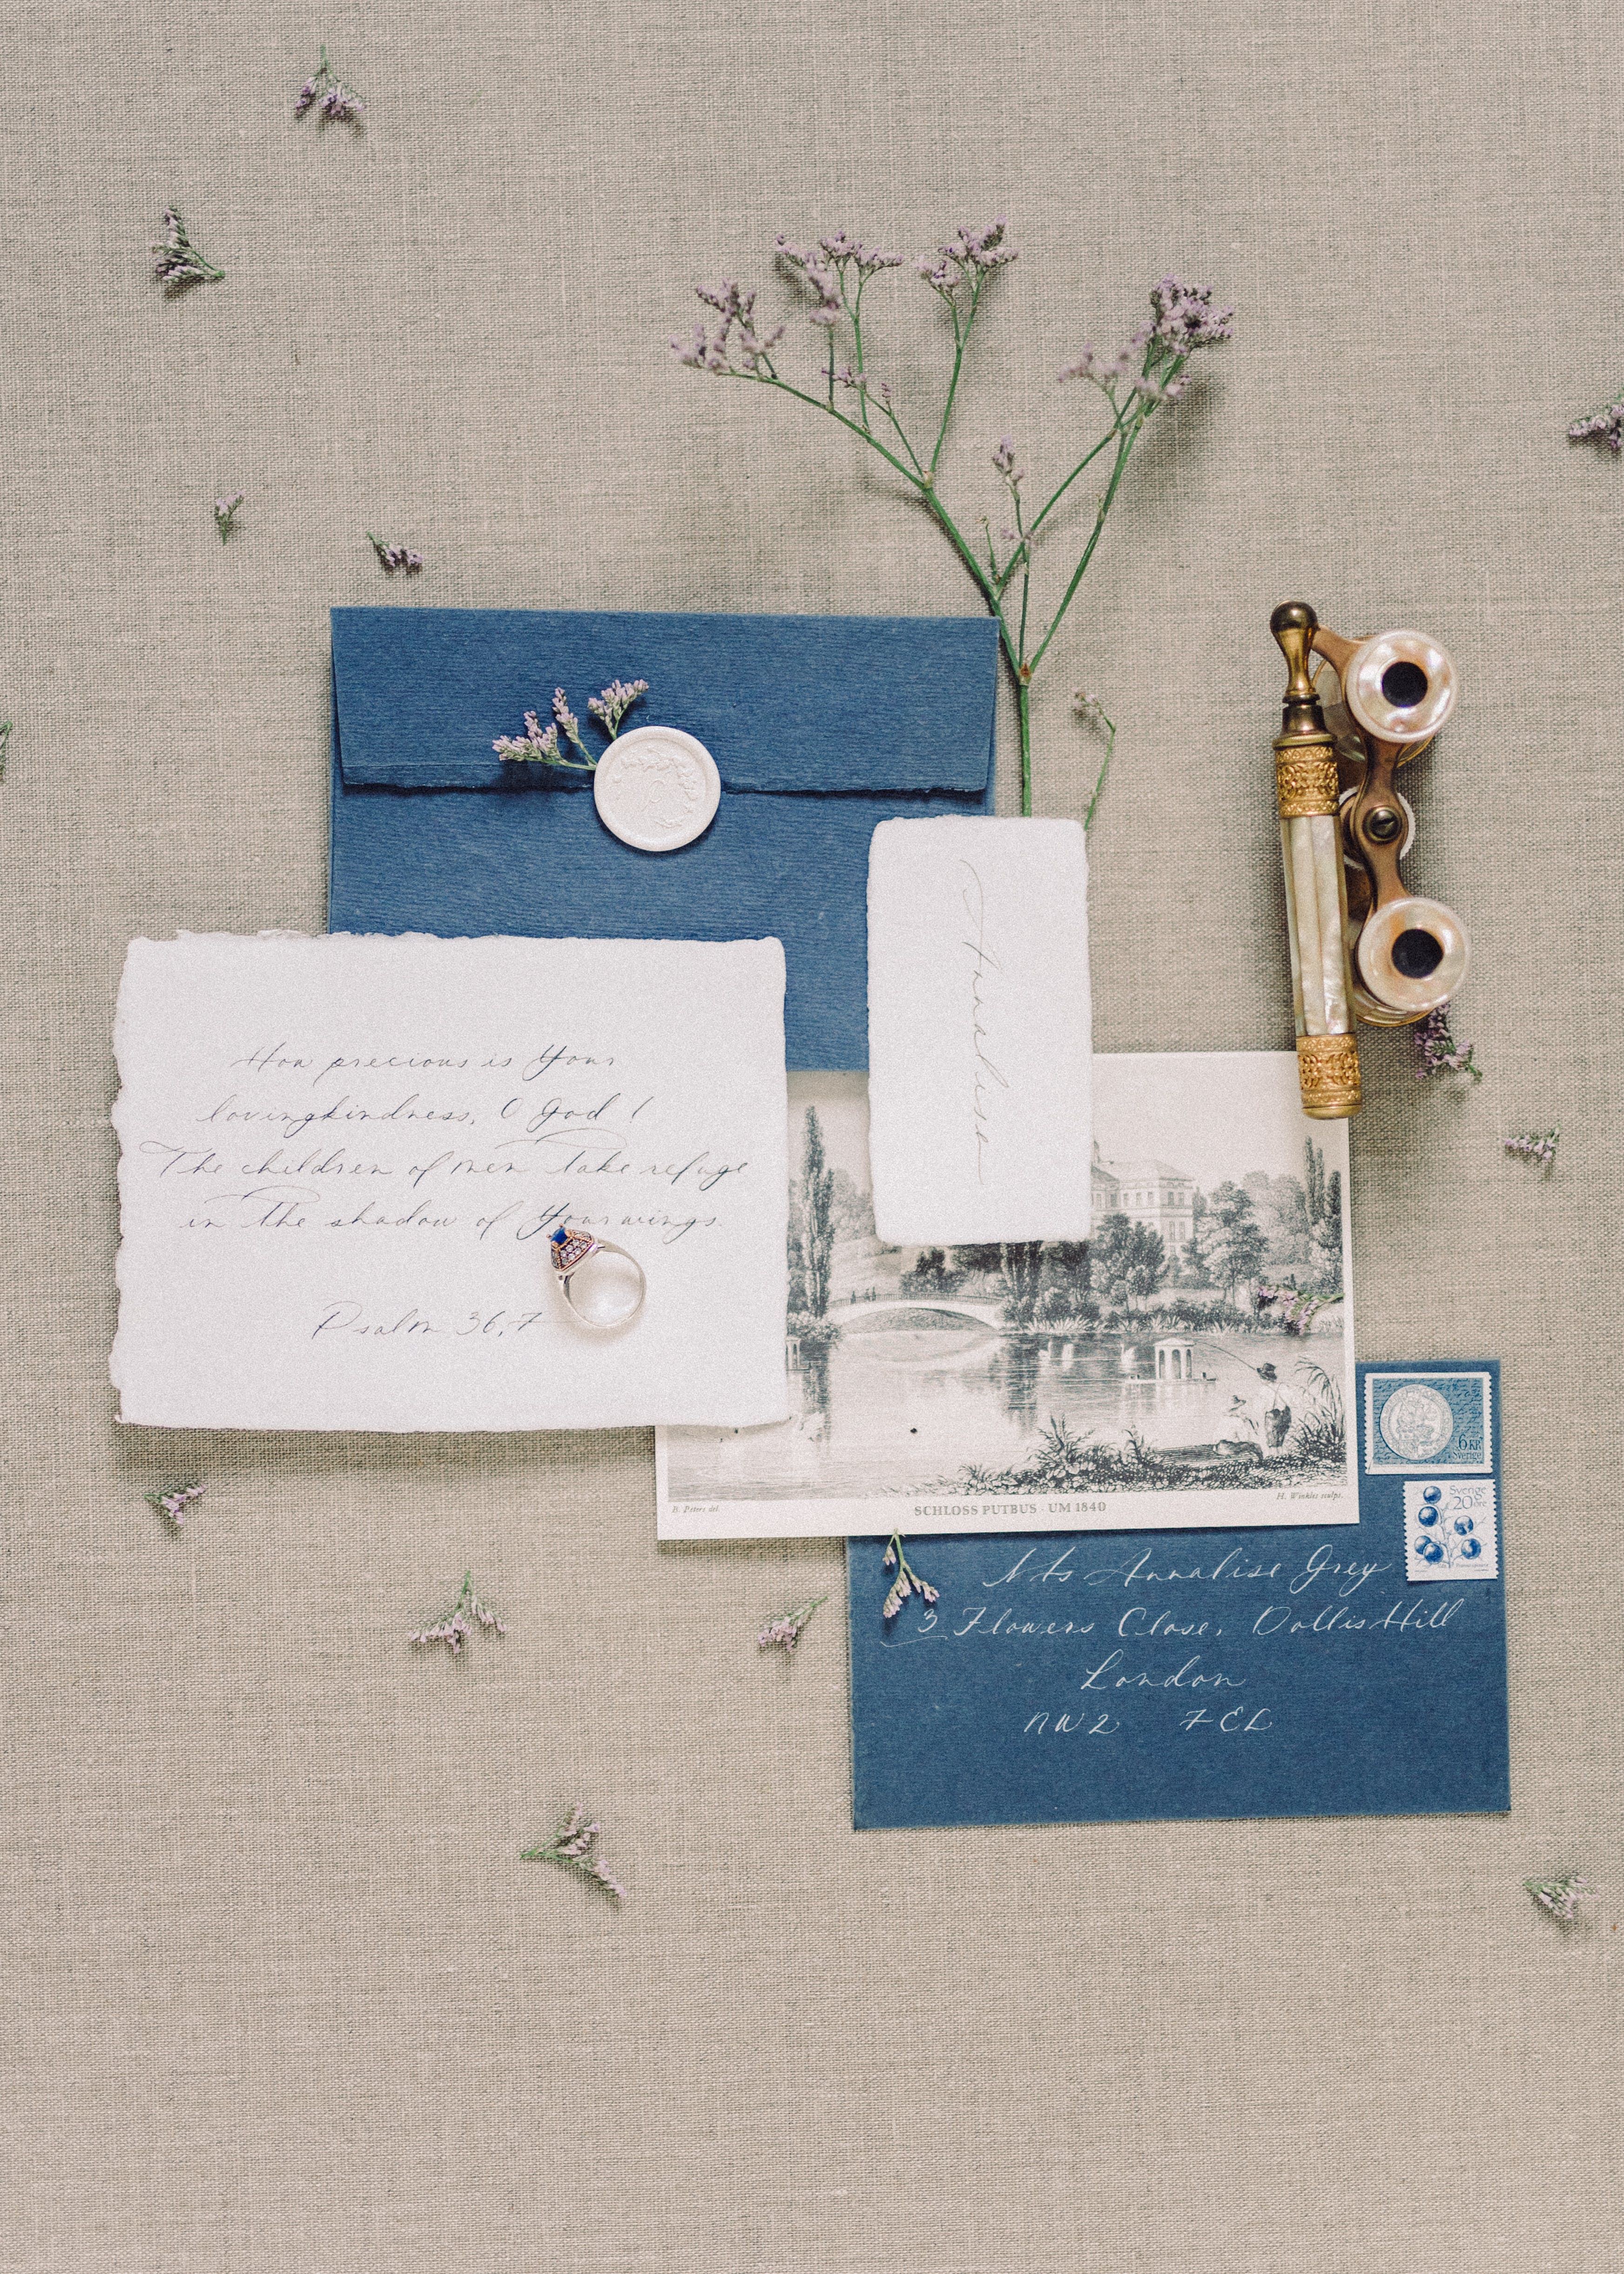 How precious is Your
lovingkindness, O God!
The children of men take refuge
in the shadow of Your wings.
Psalm 36,7
Annalise
B. Peters del.
H. Winkles sculps.
SCHLOSS PUTBUS · UM 1840
6 KR
Sverige
Sverige
20 öre
Ms Annalise Grey
3 Flowers Close, Dollis Hill
London
NW2 7EL